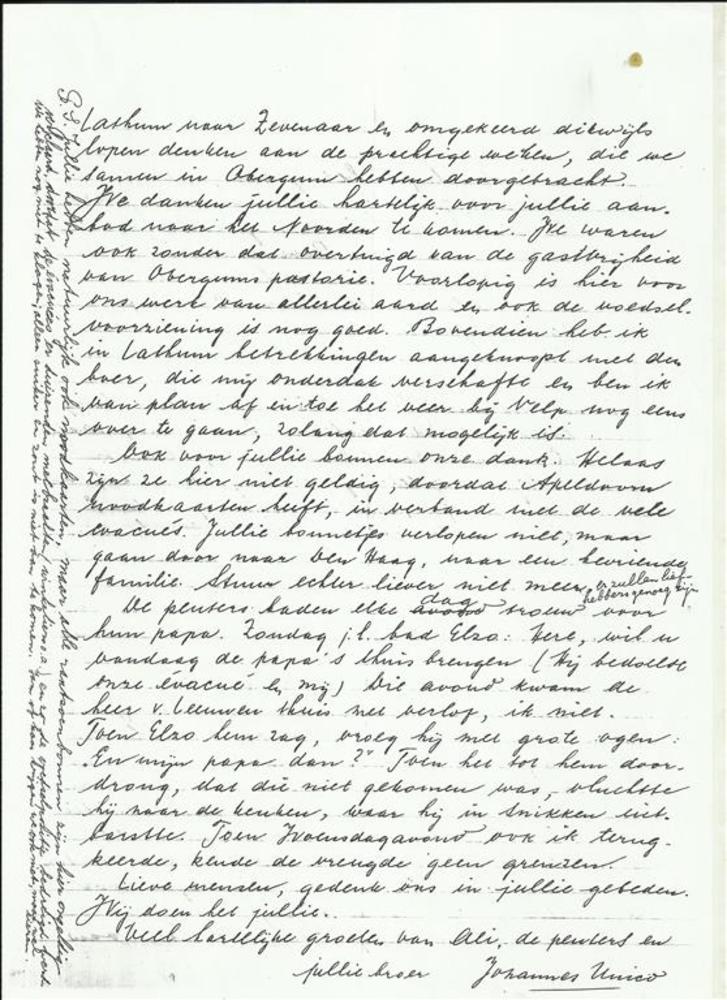 Lathum naar Zevenaar en omgekeerd dikwijls
lopen denken aan de prachtige weken, die we
samen in Obergum hebben doorgebracht.
We danken jullie hartelijk voor jullie aan-
bod naar het Noorden te komen. We waren
ook zonder dat overtuigd van de gastvrijheid
van Obergums pastorie. Voorlopig is hier voor
ons werk van allerlei aard en ook de voedsel-
voorziening is nog goed. Bovendien heb ik
in Lathum betrekkingen aangeknoopt met den
boer, die mij onderdak verschafte en ben ik
van plan af en toe het veer bij Velp nog eens
over te gaan, zolang dat mogelijk is.
Ook voor jullie bonnen onze dank. Helaas
zijn ze hier niet geldig, doordat Apeldoorn
noodkaarten heeft, in verband met de vele
evacués. Jullie bonnetjes verlopen niet, maar
gaan door naar Den Haag, naar een bevriende
familie. Stuur echter liever niet meer, er zullen lief-
hebbers genoeg zijn
De peuters baden elke avond dag trouw voor
hun papa. Zondag j.l. bad Elzo: Here, wil u
vandaag de papa's thuis brengen (Hij bedoelde
onze évacué en mij) Die avond kwam de
heer v. Leeuwen thuis met verlof, ik niet.
Toen Elzo hem zag, vroeg hij met grote ogen:
"En mijn papa dan?" Toen het tot hem door-
drong, dat die niet gekomen was, vluchtte
hij naar de keuken, waar hij in snikken uit-
barstte. Toen Woensdagavond ook ik terug-
keerde, kende de vreugde geen grenzen.
Lieve mensen, gedenk ons in jullie gebeden.
Wij doen het jullie.
Veel hartelijke groeten van Ali, de peuters en
jullie broer Johannes Unico
P.S. Jullie hebben natuurlijk ook noodkaarten, maar alle rantsoenbonnen zijn hier ongeldig